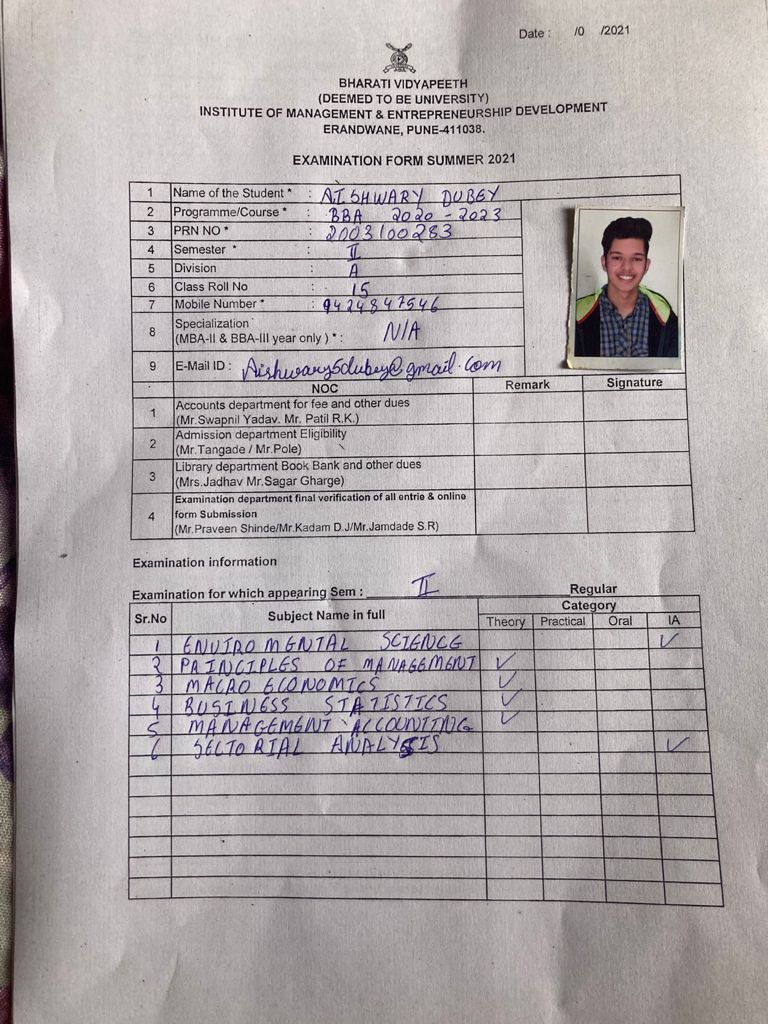 Date : /0 /2021
BHARATI VIDYAPEETH
(DEEMED TO BE UNIVERSITY)
INSTITUTE OF MANAGEMENT & ENTREPRENEURSHIP DEVELOPMENT
ERANDWANE, PUNE-411038.
EXAMINATION FORM SUMMER 2021
1 Name of the Student * : AISHWARY DUBEY
2 Programme/Course * : BBA 2020 - 2023
3 PRN NO * : 2003100283
4 Semester * : II
5 Division : A
6 Class Roll No : 15
7 Mobile Number * : 9424847546
8 Specialization
(MBA-II & BBA-III year only ) * : N/A
9 E-Mail ID : Aishwary5dubey@gmail.com
NOC Remark Signature
1 Accounts department for fee and other dues
(Mr.Swapnil Yadav. Mr. Patil R.K.)
2 Admission department Eligibility
(Mr.Tangade / Mr.Pole)
3 Library department Book Bank and other dues
(Mrs.Jadhav Mr.Sagar Gharge)
4 Examination department final verification of all entrie & online
form Submission
(Mr.Praveen Shinde/Mr.Kadam D.J/Mr.Jamdade S.R)
Examination information
Examination for which appearing Sem : II Regular
Sr.No Subject Name in full Category
Theory Practical Oral IA
1 ENVIROMENTAL SCIENCE ✓
2 PRINCIPLES OF MANAGEMENT ✓
3 MACRO ECONOMICS ✓
4 BUSINESS STATISTICS ✓
5 MANAGEMENT ACCOUNTING ✓
6 SECTORIAL ANALYSIS ✓